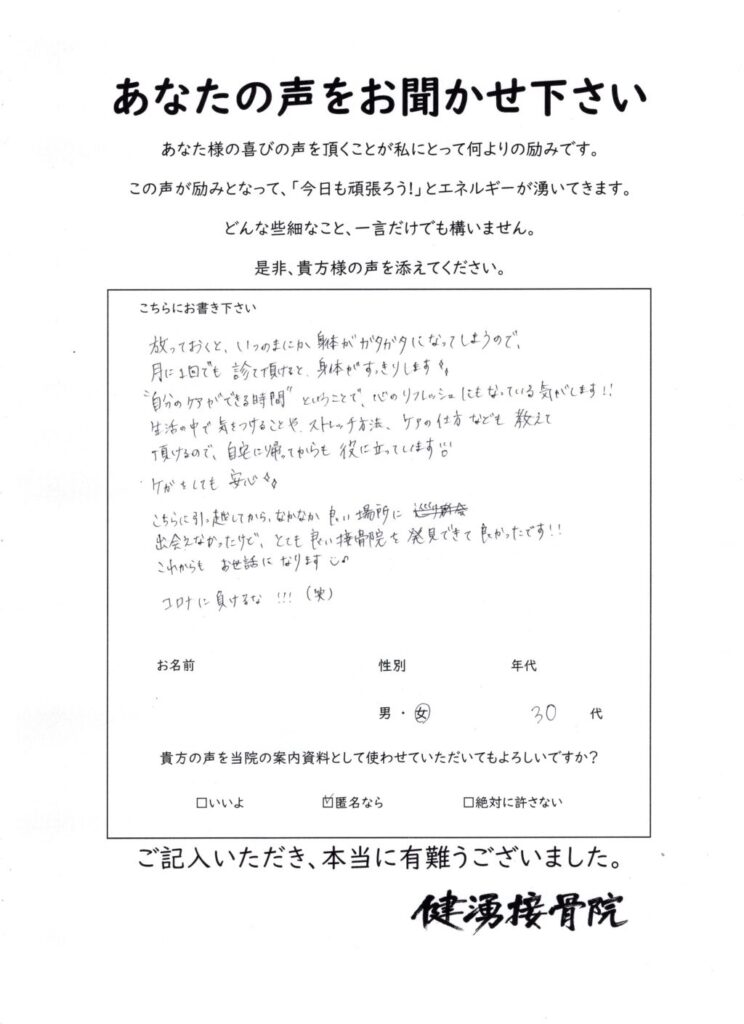 あなたの声をお聞かせ下さい
あなた様の喜びの声を頂くことが私にとって何よりの励みです。
この声が励みとなって、「今日も頑張ろう!」とエネルギーが湧いてきます。
どんな些細なこと、一言だけでも構いません。
是非、貴方様の声を添えてください。
こちらにお書き下さい
放っておくと、いつのまにか身体がガタガタになってしまうので、
月に1回でも診て頂けると、身体がすっきりします
"自分のケアができる時間"ということで、心のリフレッシュにもなっている気がします!!
生活の中で気をつけることや、ストレッチ方法、ケアの仕方なども教えて
頂けるので、自宅に帰ってからも役に立ってします
ケガをしても安心
こちらに引っ越してから、なかなか良い場所に
出会えなかったけど、とても良い接骨院を発見できて良かったです!!
これからもお世話になります♪
コロナに負けるな!!!(笑)
お名前 性別 年代
男・女 30 代
貴方の声を当院の案内資料として使わせていただいてもよろしいですか?
□いいよ ☑匿名なら □絶対に許さない
ご記入いただき、本当に有難うございました。
健湧接骨院